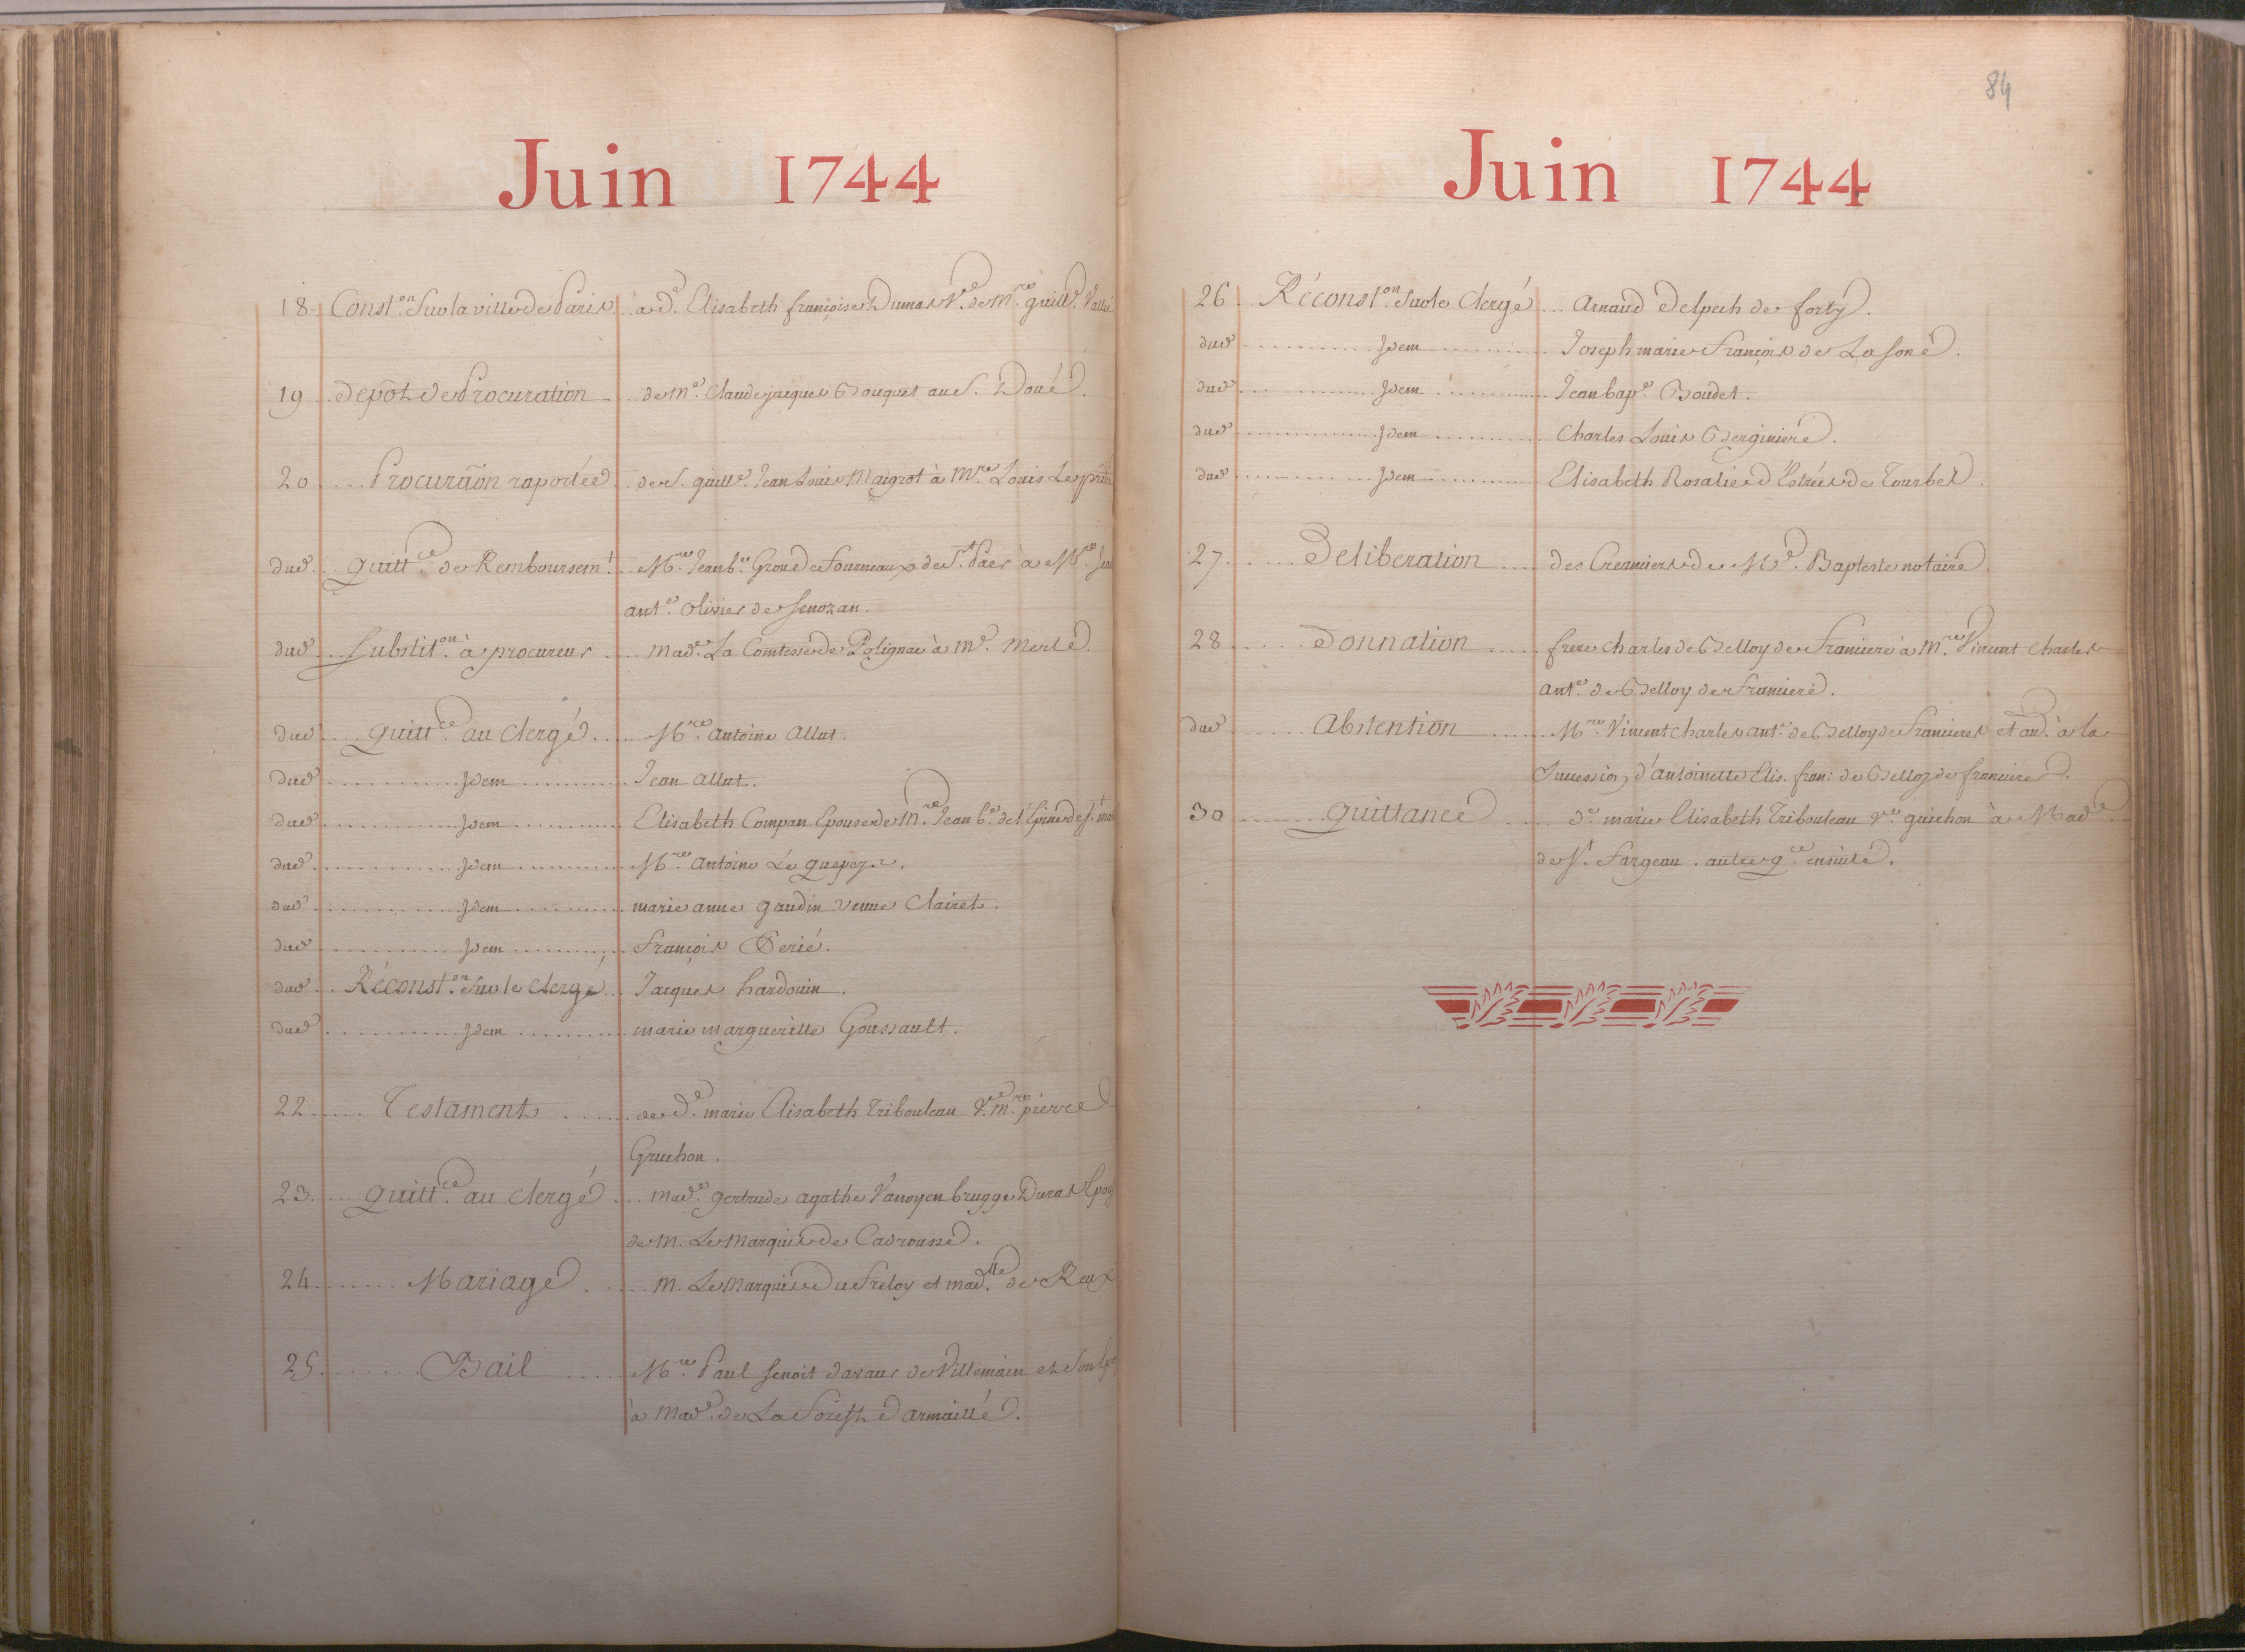 Juin 1744
18 Const.on Sur la ville de Paris à d.e Elisabeth françoise Dumas V.ve de M.re guill.e Vallé
19 depôt de Procuration de M.e Claude jacques Bouquet au S. Doué.
20 Procurãon raportée de S. guill.e Jean Louis Maigrot à M.re Louis
dud. quitt.ce de Remboursem.t M.re Jean b.te Grou de Fourneaux de S.t Paër à M.re
ant.e olivier de Senozan.
dud. Substit.on à procureur Mad.e La Comtesse de Polignac à M.e Merlé.
dud. quitt.ce au Clergé. M.re antoine allut.
dud. Idem Jean allut.
dud. Idem Elisabeth Compan Epouse de M.re Jean b.te de l'Epine de S.t
dud. Idem M.re antoine Le
dud. Idem marie anne gaudin veuve Clairet.
dud. Idem François Perié.
dud. Réconst.on Sur le Clergé Jacques hardouin.
dud. Idem marie margueritte Goussault.
22 Testament de d.e marie Elisabeth Tribouleau V.e M.re pierre
Gruchon.
23 quitt.ce au Clergé Mad.e gertrude agathe Vanoyenbrugge Duras
de M. Le Marquis de Cadrousse.
24 Mariage M. Le Marquis du Freloy et mad.lle de Reux
25 Bail M.re Paul Benoit de Villemain et Son
à Mad.e de La Forest d'armaillé.
84
Juin 1744
26 Réconst.on Sur le Clergé Arnaud Delpech de
dud. Idem Joseph marie François de Lasoné.
dud. Idem Jean bap.e Boudet.
dud. Idem Charles Louis Berginiere.
dud. Idem Elisabeth Rosalie d'Estrées de Tourbes.
27 Deliberation des Creanciers de M.e Bapteste notaire.
28 Donnation frere charles de Belloy de Franciere à M.re Vincent Charles
ant.e de Belloy de Franciere.
dud. Abstention M.re Vincent charles ant.e de Belloy de Francieres à la
Succession d'antoinette Elis. fran: de Belloy de franciere.
30 quittance d.e marie Elisabeth Tribouleau V.ve gruchon à Mad.e
de S.t Fargeau. autre q.ce ensuite.